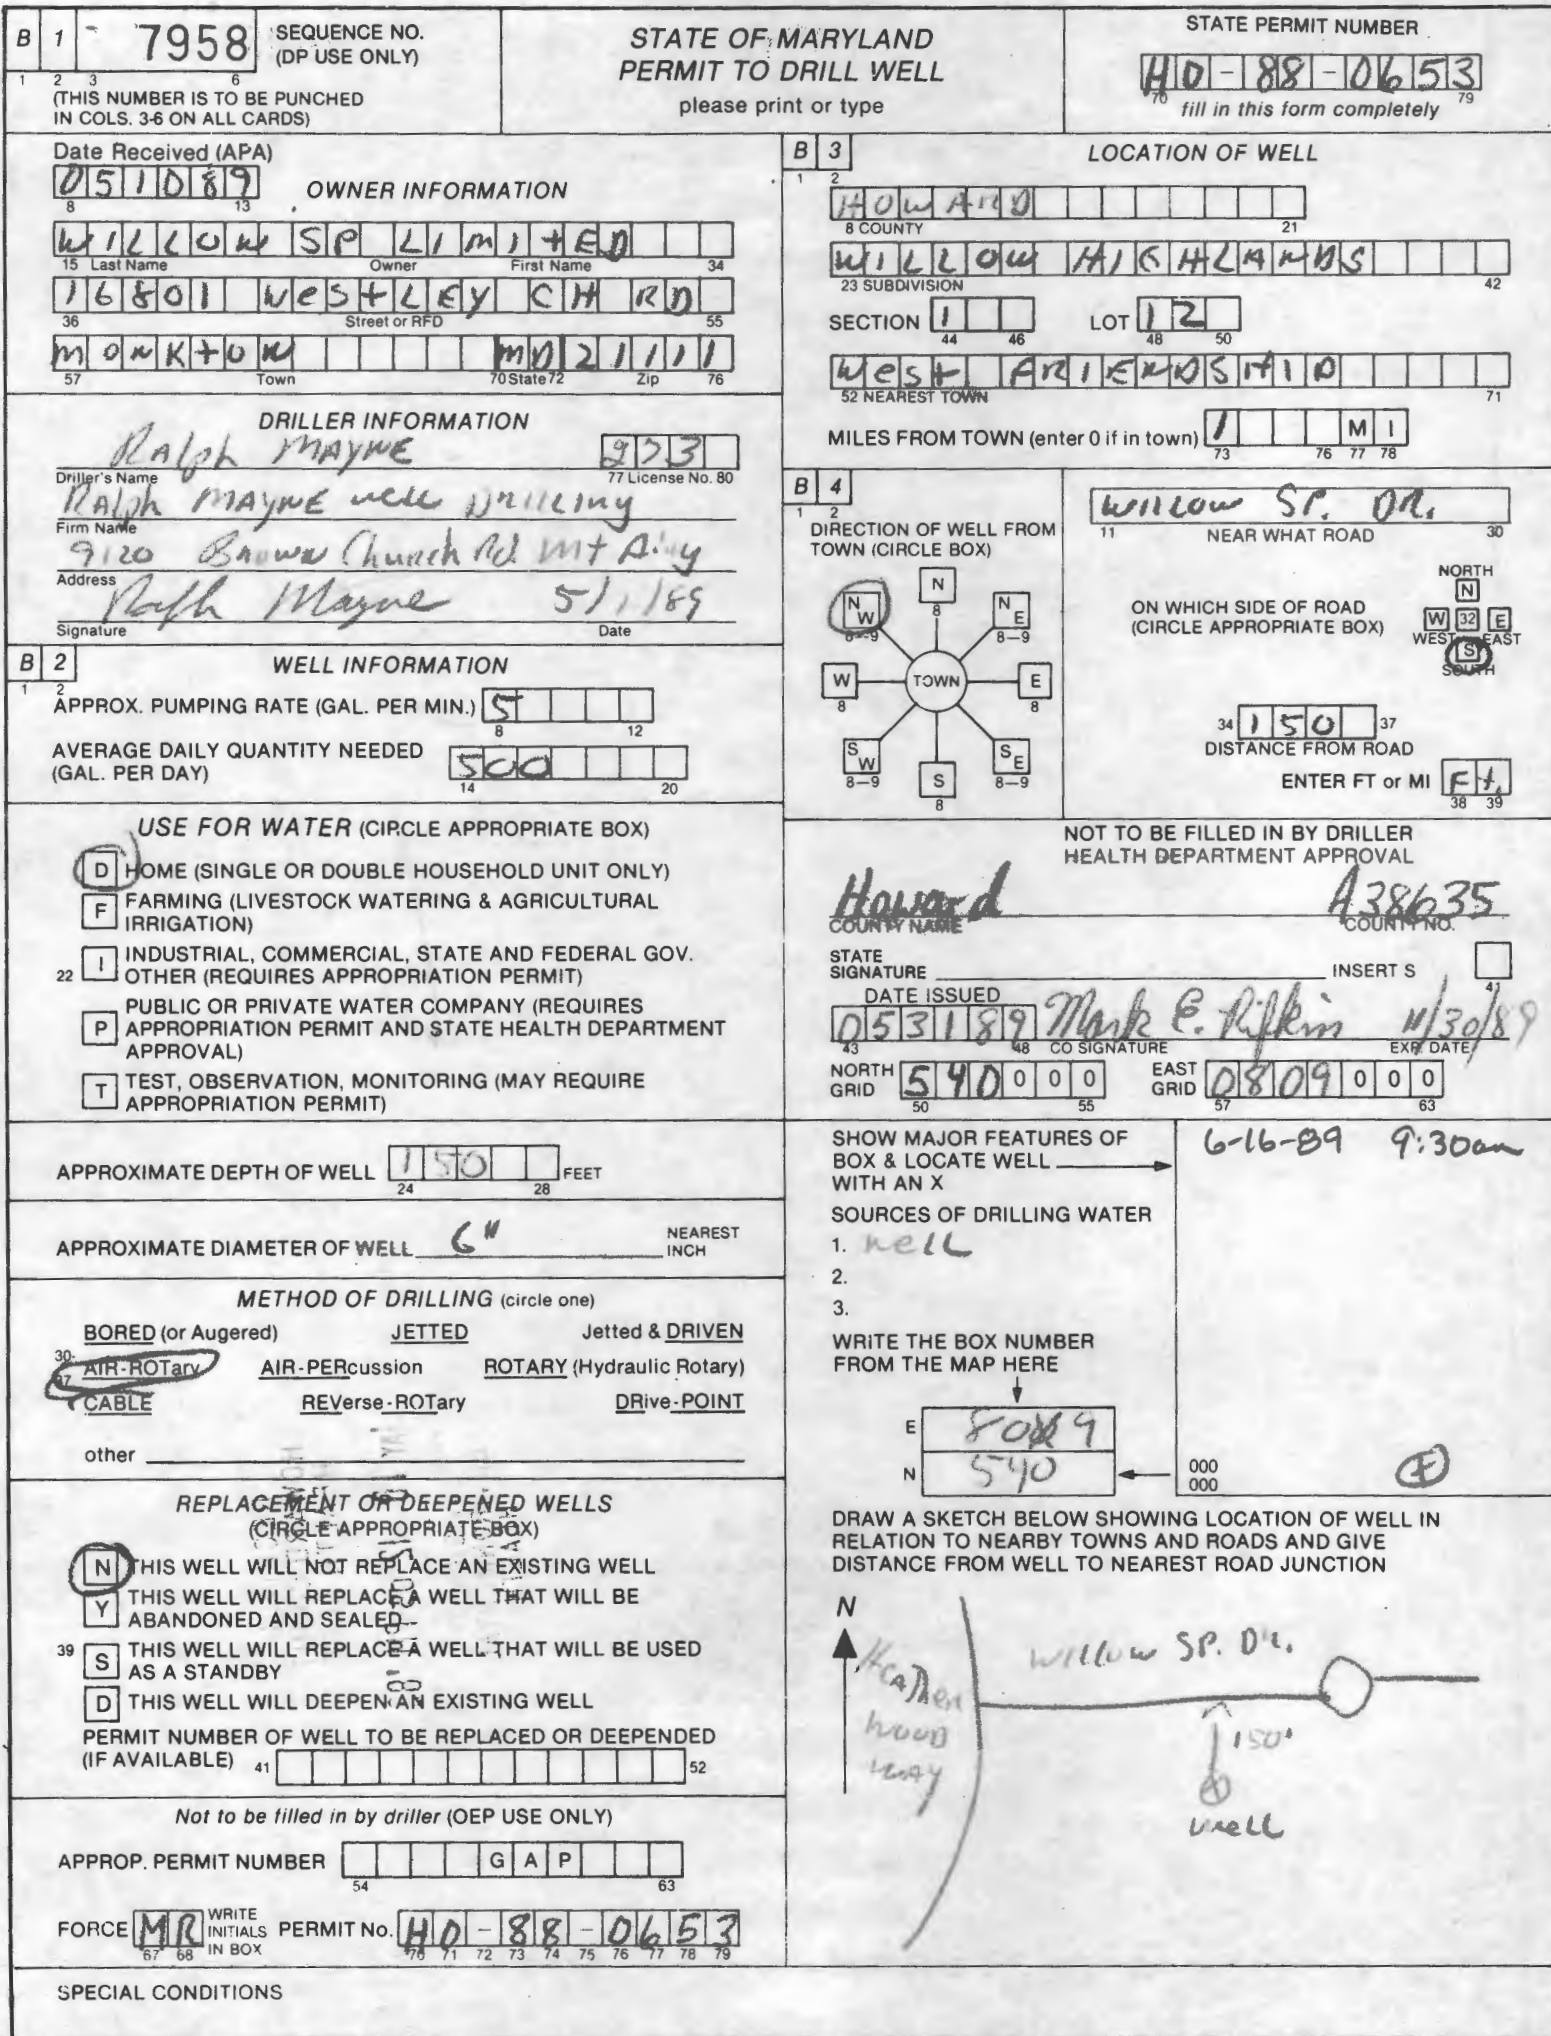 B 1 7958 SEQUENCE NO.
(DP USE ONLY)
1 2 3 6
(THIS NUMBER IS TO BE PUNCHED
IN COLS. 3-6 ON ALL CARDS)
STATE OF MARYLAND
PERMIT TO DRILL WELL
please print or type
STATE PERMIT NUMBER
HO-88-0653
70 79
fill in this form completely
Date Received (APA)
051089
8 13
OWNER INFORMATION
WILLOW SP LIMItED
15 Last Name Owner First Name 34
16801 WEStLEY CH RD
36 Street or RFD 55
MONKtON MD 21111
57 Town 70 State 72 Zip 76
DRILLER INFORMATION
RALph MAYNE 273
Driller's Name 77 License No. 80
RALph MAYNE well DRILLINg
Firm Name
9120 BROWN Church Rd Mt Airy
Address
Ralph Mayne 5/1/89
Signature Date
B 2 WELL INFORMATION
1 2
APPROX. PUMPING RATE (GAL. PER MIN.) 5
8 12
AVERAGE DAILY QUANTITY NEEDED
(GAL. PER DAY) 500
14 20
USE FOR WATER (CIRCLE APPROPRIATE BOX)
D HOME (SINGLE OR DOUBLE HOUSEHOLD UNIT ONLY)
F FARMING (LIVESTOCK WATERING & AGRICULTURAL
IRRIGATION)
22 I INDUSTRIAL, COMMERCIAL, STATE AND FEDERAL GOV.
OTHER (REQUIRES APPROPRIATION PERMIT)
P PUBLIC OR PRIVATE WATER COMPANY (REQUIRES
APPROPRIATION PERMIT AND STATE HEALTH DEPARTMENT
APPROVAL)
T TEST, OBSERVATION, MONITORING (MAY REQUIRE
APPROPRIATION PERMIT)
APPROXIMATE DEPTH OF WELL 150 FEET
24 28
APPROXIMATE DIAMETER OF WELL 6" NEAREST
INCH
METHOD OF DRILLING (circle one)
BORED (or Augered) JETTED Jetted & DRIVEN
30-
37 AIR-ROTary AIR-PERcussion ROTARY (Hydraulic Rotary)
CABLE REVerse-ROTary DRive-POINT
other
REPLACEMENT OR DEEPENED WELLS
(CIRCLE APPROPRIATE BOX)
N THIS WELL WILL NOT REPLACE AN EXISTING WELL
Y THIS WELL WILL REPLACE A WELL THAT WILL BE
ABANDONED AND SEALED
39 S THIS WELL WILL REPLACE A WELL THAT WILL BE USED
AS A STANDBY
D THIS WELL WILL DEEPEN AN EXISTING WELL
PERMIT NUMBER OF WELL TO BE REPLACED OR DEEPENDED
(IF AVAILABLE) 41 52
Not to be filled in by driller (OEP USE ONLY)
APPROP. PERMIT NUMBER G A P
54 63
FORCE MR WRITE
INITIALS
IN BOX PERMIT No. HO-88-0653
67 68 70 71 72 73 74 75 76 77 78 79
SPECIAL CONDITIONS
B 3 LOCATION OF WELL
1 2
HOWARD
8 COUNTY 21
WILLOW HIGHLANDS
23 SUBDIVISION 42
SECTION 1 LOT 12
44 46 48 50
WeSt FRIENDSHIP
52 NEAREST TOWN 71
MILES FROM TOWN (enter 0 if in town) 1 M I
73 76 77 78
B 4
1 2
DIRECTION OF WELL FROM
TOWN (CIRCLE BOX)
N
8
NW
8-9
NE
8-9
W
8
TOWN
E
8
SW
8-9
S
8
SE
8-9
WILLOW SP. DR.
11 NEAR WHAT ROAD 30
ON WHICH SIDE OF ROAD
(CIRCLE APPROPRIATE BOX)
NORTH
N
W 32 E
WEST EAST
S
SOUTH
34 150 37
DISTANCE FROM ROAD
ENTER FT or MI Ft.
38 39
NOT TO BE FILLED IN BY DRILLER
HEALTH DEPARTMENT APPROVAL
Howard A38635
COUNTY NAME COUNTY NO.
STATE
SIGNATURE INSERT S
41
DATE ISSUED
053189 Mark E. Rifkin 11/30/89
43 48 CO SIGNATURE EXP. DATE
NORTH
GRID 540000 EAST
GRID 0809000
50 55 57 63
SHOW MAJOR FEATURES OF
BOX & LOCATE WELL
WITH AN X
6-16-89 9:30am
SOURCES OF DRILLING WATER
1. well
2.
3.
WRITE THE BOX NUMBER
FROM THE MAP HERE
E
N 540
000
000
DRAW A SKETCH BELOW SHOWING LOCATION OF WELL IN
RELATION TO NEARBY TOWNS AND ROADS AND GIVE
DISTANCE FROM WELL TO NEAREST ROAD JUNCTION
N
Heather
WOOD
WAY
WILLOW SP. DR.
150'
well